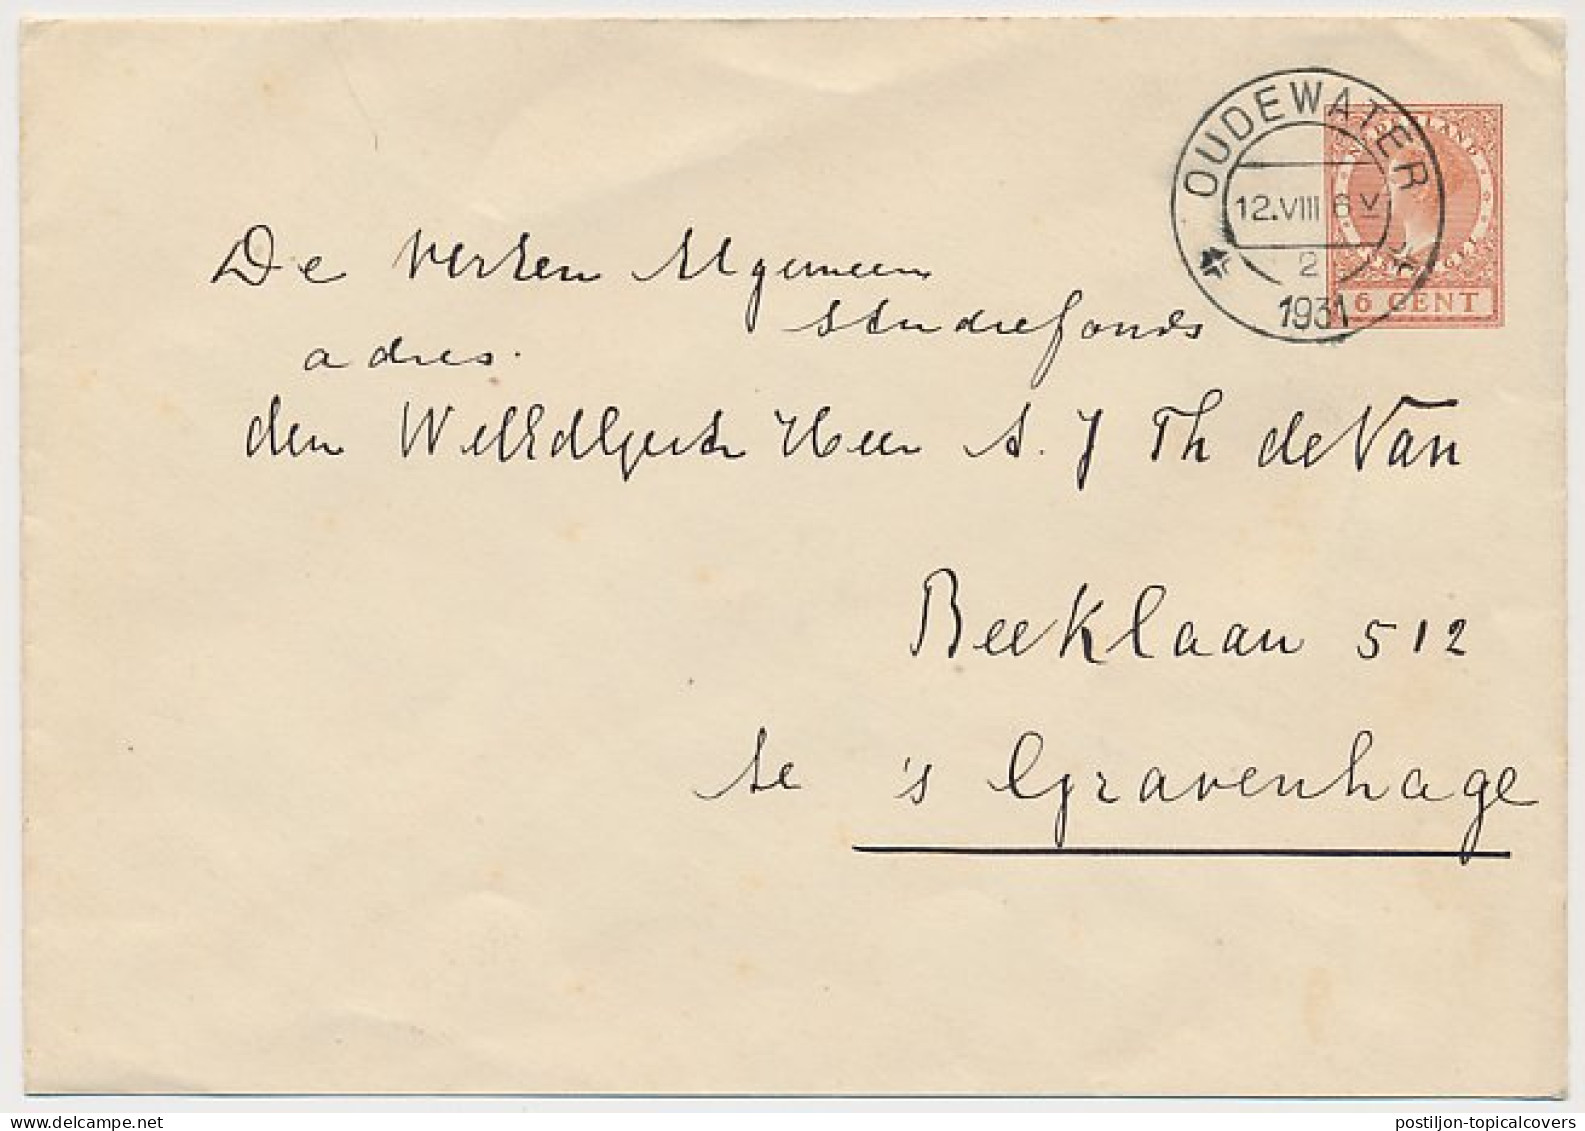 OUDEWATER
12.VIII 6 V
2
1931
NEDERLAND
6 CENT
De Algemeen
Studiefonds
adres.
den WelEdlgestr Heer A. J Th de Van
Beeklaan 512
te 's Gravenhage
postiljon-topicalcovers